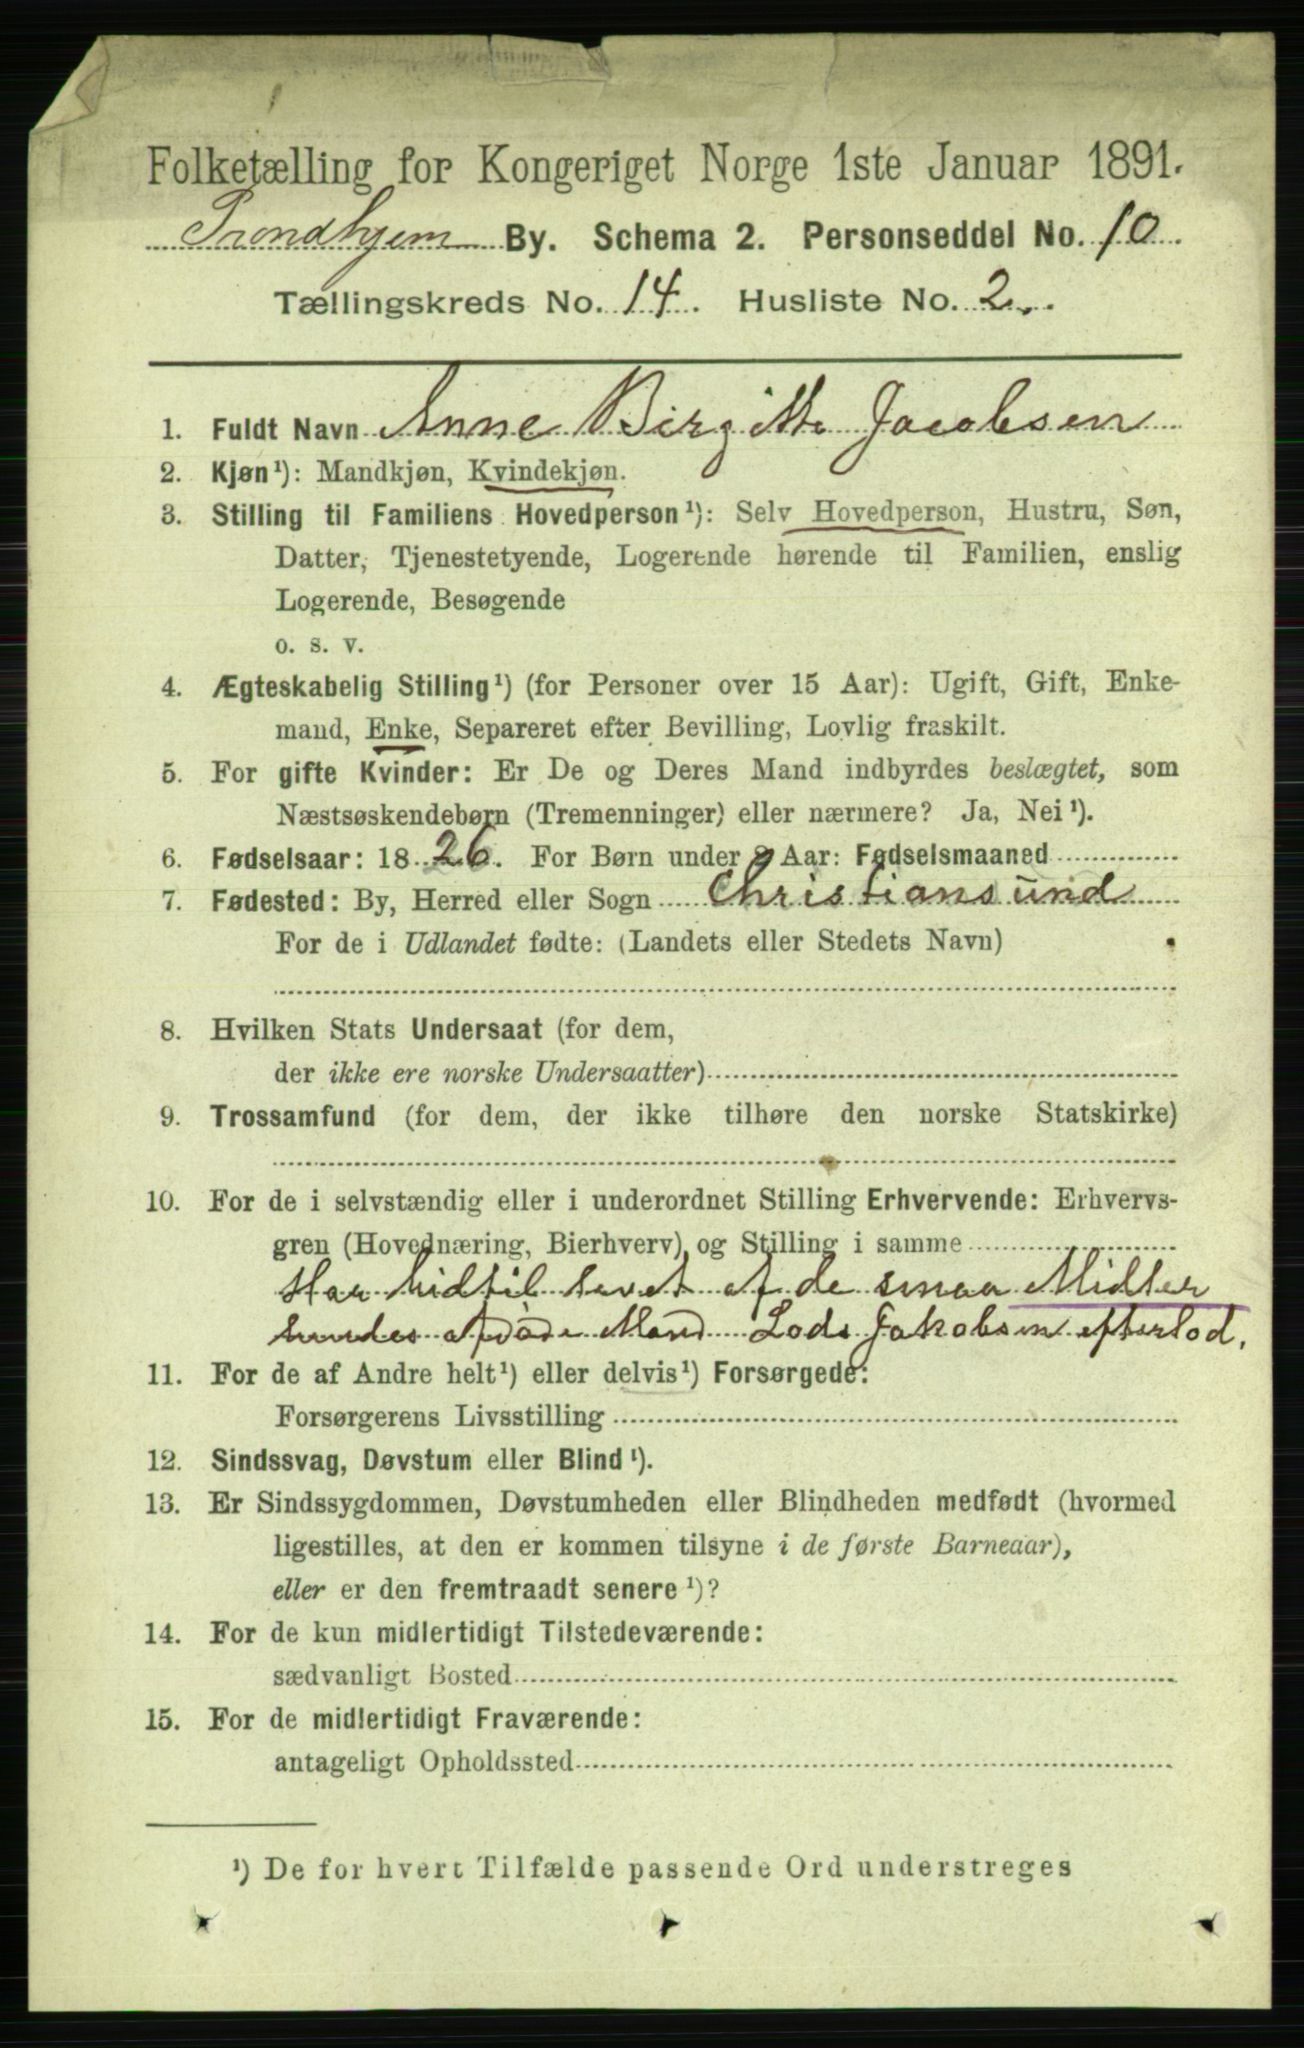 Folketælling for Kongeriget Norge 1ste Januar 1891.
Trondhjem By. Schema 2. Personseddel No. 10.
Tællingskreds No. 14. Husliste No. 2.
1. Fuldt Navn Anne Birgitte Jacobsen
2. Kjøn¹): Mandkjøn, Kvindekjøn.
3. Stilling til Familiens Hovedperson¹): Selv Hovedperson, Hustru, Søn,
Datter, Tjenestetyende, Logerende hørende til Familien, enslig
Logerende, Besøgende
o. s. v.
4. Ægteskabelig Stilling¹) (for Personer over 15 Aar): Ugift, Gift, Enke-
mand, Enke, Separeret efter Bevilling, Lovlig fraskilt.
5. For gifte Kvinder: Er De og Deres Mand indbyrdes beslægtet, som
Næstsøskendebørn (Tremenninger) eller nærmere? Ja, Nei¹).
6. Fødselsaar: 1826. For Børn under 2 Aar: Fødselsmaaned
7. Fødested: By, Herred eller Sogn Christiansund
For de i Udlandet fødte: (Landets eller Stedets Navn)
8. Hvilken Stats Undersaat (for dem,
der ikke ere norske Undersaatter)
9. Trossamfund (for dem, der ikke tilhøre den norske Statskirke)
10. For de i selvstændig eller i underordnet Stilling Erhvervende: Erhvervs-
gren (Hovednæring, Bierhverv) og Stilling i samme
Har hidtil levet af de smaa Midler
hendes afdøde Mand Lods Jakobsen efterlod.
11. For de af Andre helt¹) eller delvis¹) Forsørgede:
Forsørgerens Livsstilling
12. Sindssvag, Døvstum eller Blind¹).
13. Er Sindssygdommen, Døvstumheden eller Blindheden medfødt (hvormed
ligestilles, at den er kommen tilsyne i de første Barneaar),
eller er den fremtraadt senere¹)?
14. For de kun midlertidigt Tilstedeværende:
sædvanligt Bosted
15. For de midlertidigt Fraværende:
antageligt Opholdssted
¹) De for hvert Tilfælde passende Ord understreges